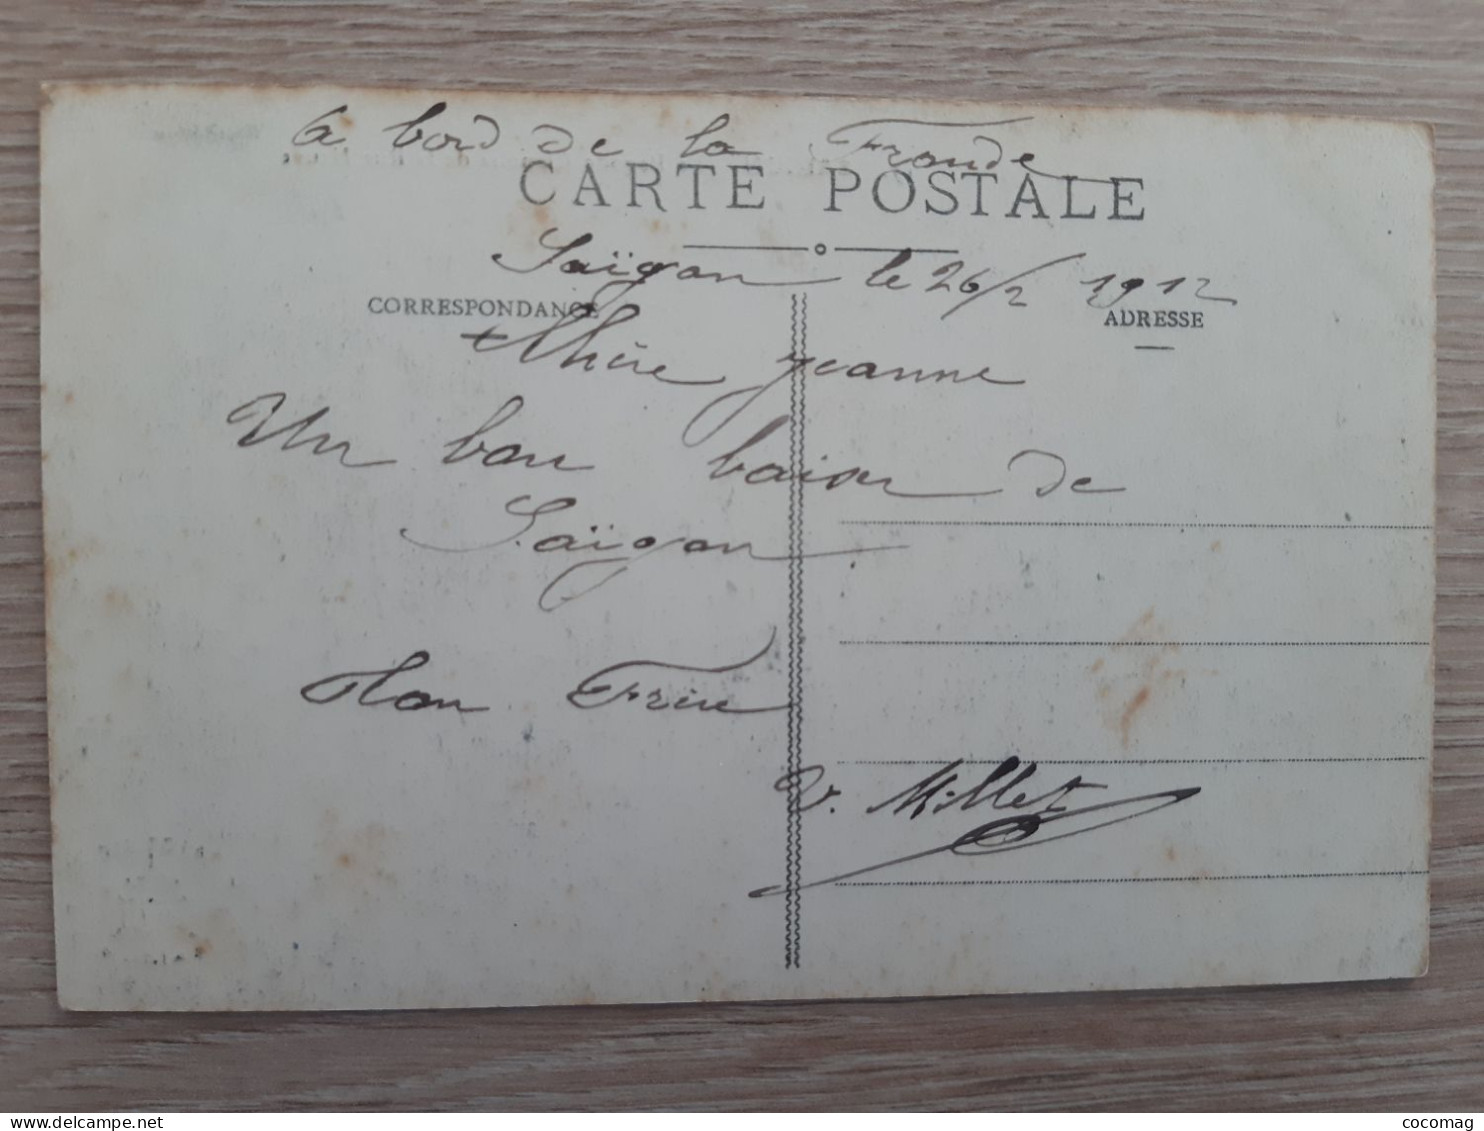 A bord de la Fronde
CARTE POSTALE
Saïgon le 26/2 1912
CORRESPONDANCE
ADRESSE
Chère Jeanne
Un bon baiser de
Saïgon
Ton Frère
V. Millet
cocomag